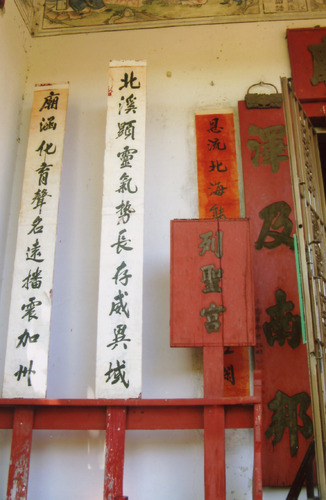 澤及南邦
恩流北海
列聖宮
北溪顯靈氣勢長存威異域
廟涵化育聲名遠播震加州